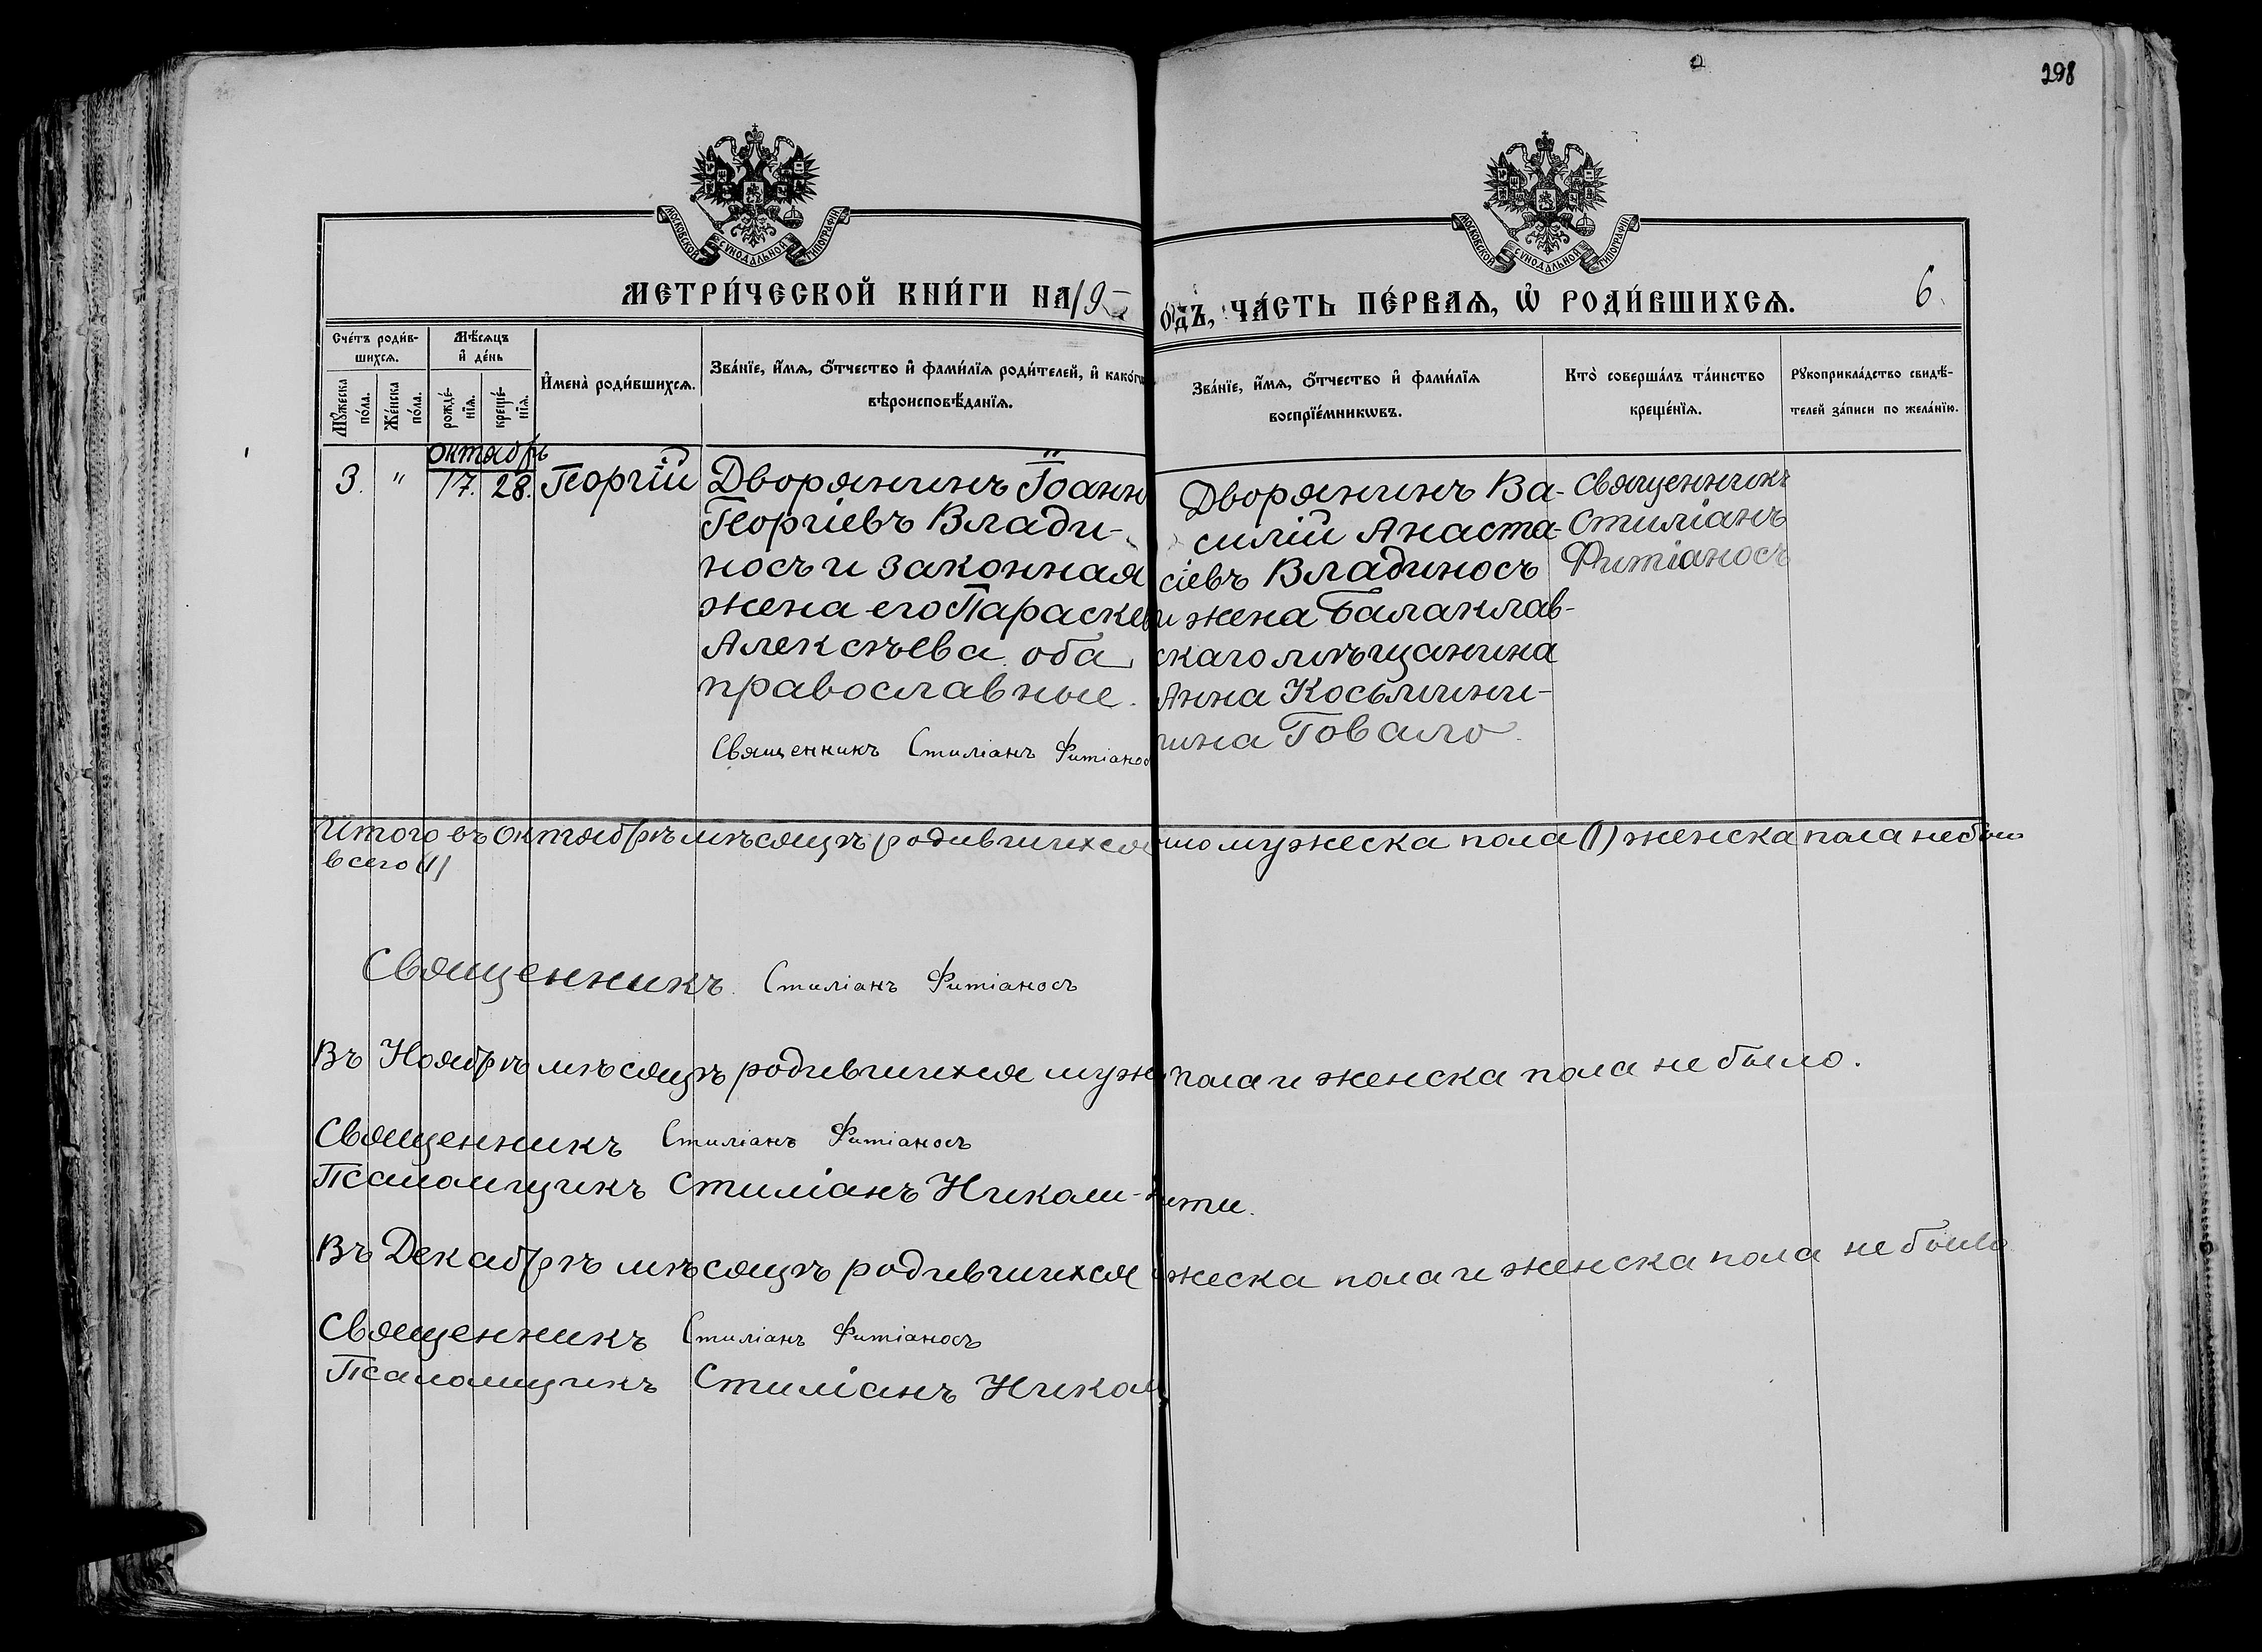 298
МОСКОВСКОЙ СѴНОДАЛЬНОЙ ТИПОГРАФІИ
МОСКОВСКОЙ СѴНОДАЛЬНОЙ ТИПОГРАФІИ
МЕТРИ́ЧЕСКОЙ КНИ́ГИ НА 19
ОДЪ, ЧА́СТЬ ПЕ́РВАЯ, Ѡ РОДИ́ВШИХСЯ.
6.
Сче́тъ роди́в-
шихся.
Мѣ́сяцъ
и де́нь
Мꙋ́жеска
по́ла.
Же́нска
по́ла.
рожде́-
нїя.
креще́-
нїя.
И҆мена̀ роди́вшихся.
Зва́нїе, и҆́мя, ѻ҆́тчество и҆ фами́лїя роди́телей, и҆ како́гѡ
вѣроисповѣ́данїя.
Зва́нїе, и҆́мя, ѻ҆́тчество и҆ фами́лїя
воспрїе́мникѡвъ.
Кто̀ соверша́лъ та́инство
креще́нїя.
Рꙋкоприкла́дство свидѣ́-
телей за́писи по жела́нїю.
октябрь
3. " 17. 28. Георгій
Дворянинъ Іоанн
Георгіевъ Влади-
носъ и законная
жена его Параскев
Алексѣева оба
православные.
Священникъ Стиліанъ Фитіанос
Дворянинъ Ва-
силій Анаста-
сіевъ Владиносъ
и жена Балаклав-
скаго мѣщанина
Анна Косьмини-
чина Говало
Священникъ
Стиліанъ
Фитіаносъ
Итого въ октябрѣ мѣсяцѣ родившихся мужеска пола (1) женска пола небыло
всего (1)
Священникъ Стиліанъ Фитіаносъ
Въ Ноябрѣ мѣсяцѣ родившихся муж пола и женска пола не было.
Священникъ Стиліанъ Фитіаносъ
Псаломщикъ Стиліанъ Николи-
Въ Декабрѣ мѣсяцѣ родившихся жеска пола и женска пола не было
Священникъ Стиліанъ Фитіаносъ
Псаломщикъ Стиліанъ Никол